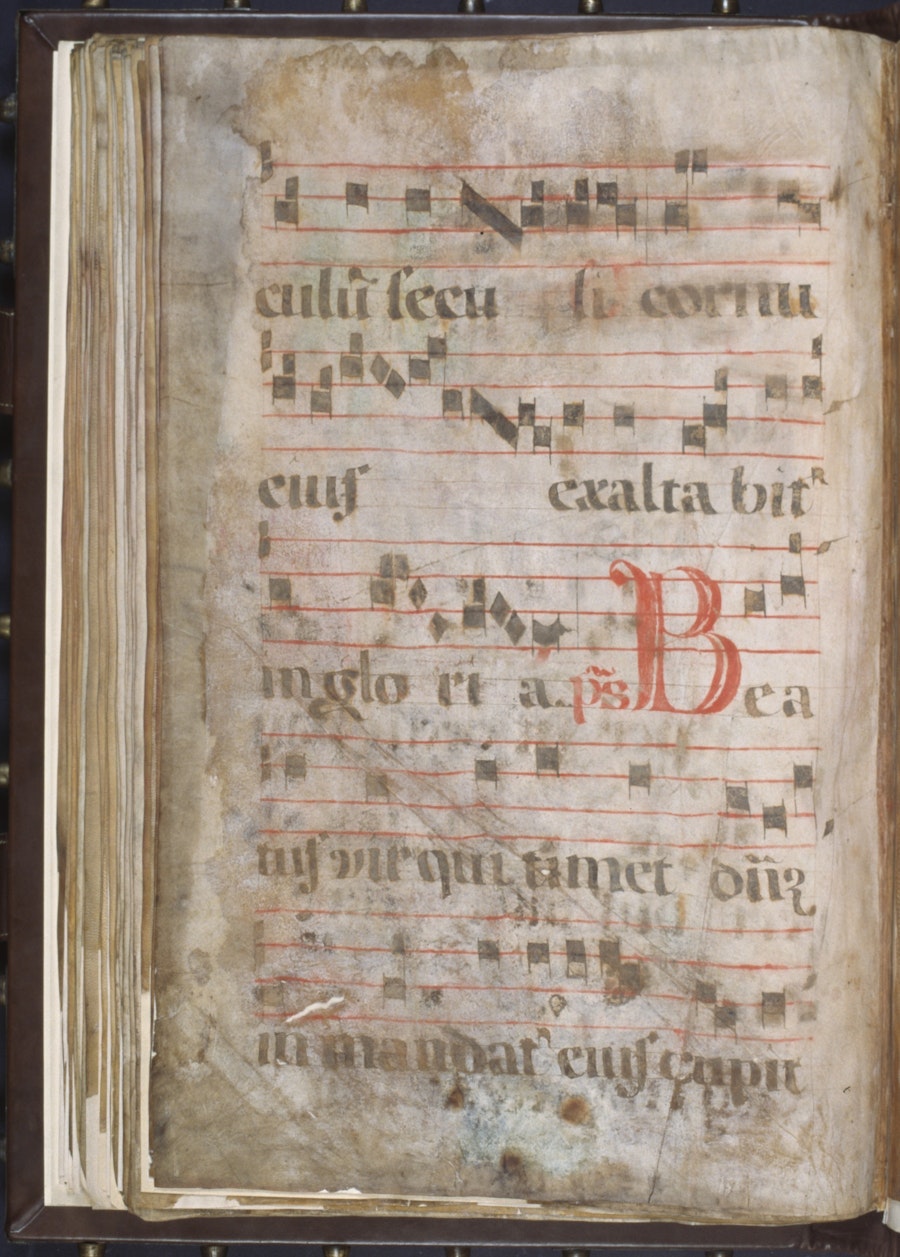 culũ ſecu li cornu
eiuſ exalta bitᴿ
in glo ri a. p̃s Bea
tuſ vir qui timet dñ̃ꝫ
in mandatꝰ eiuſ cupit